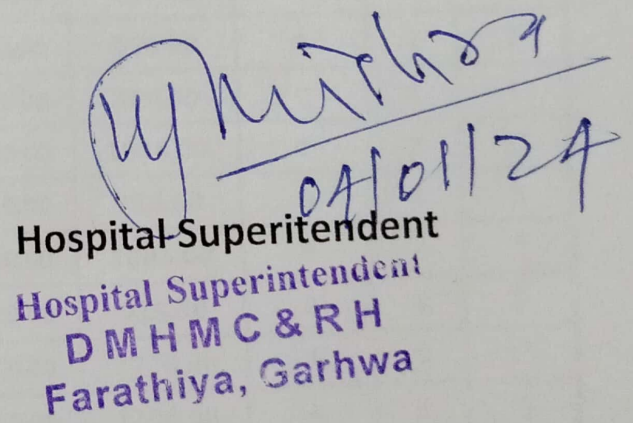 Mishra
04/01/24
Hospital Superitendent
Hospital Superintendent
D M H M C & R H
Farathiya, Garhwa